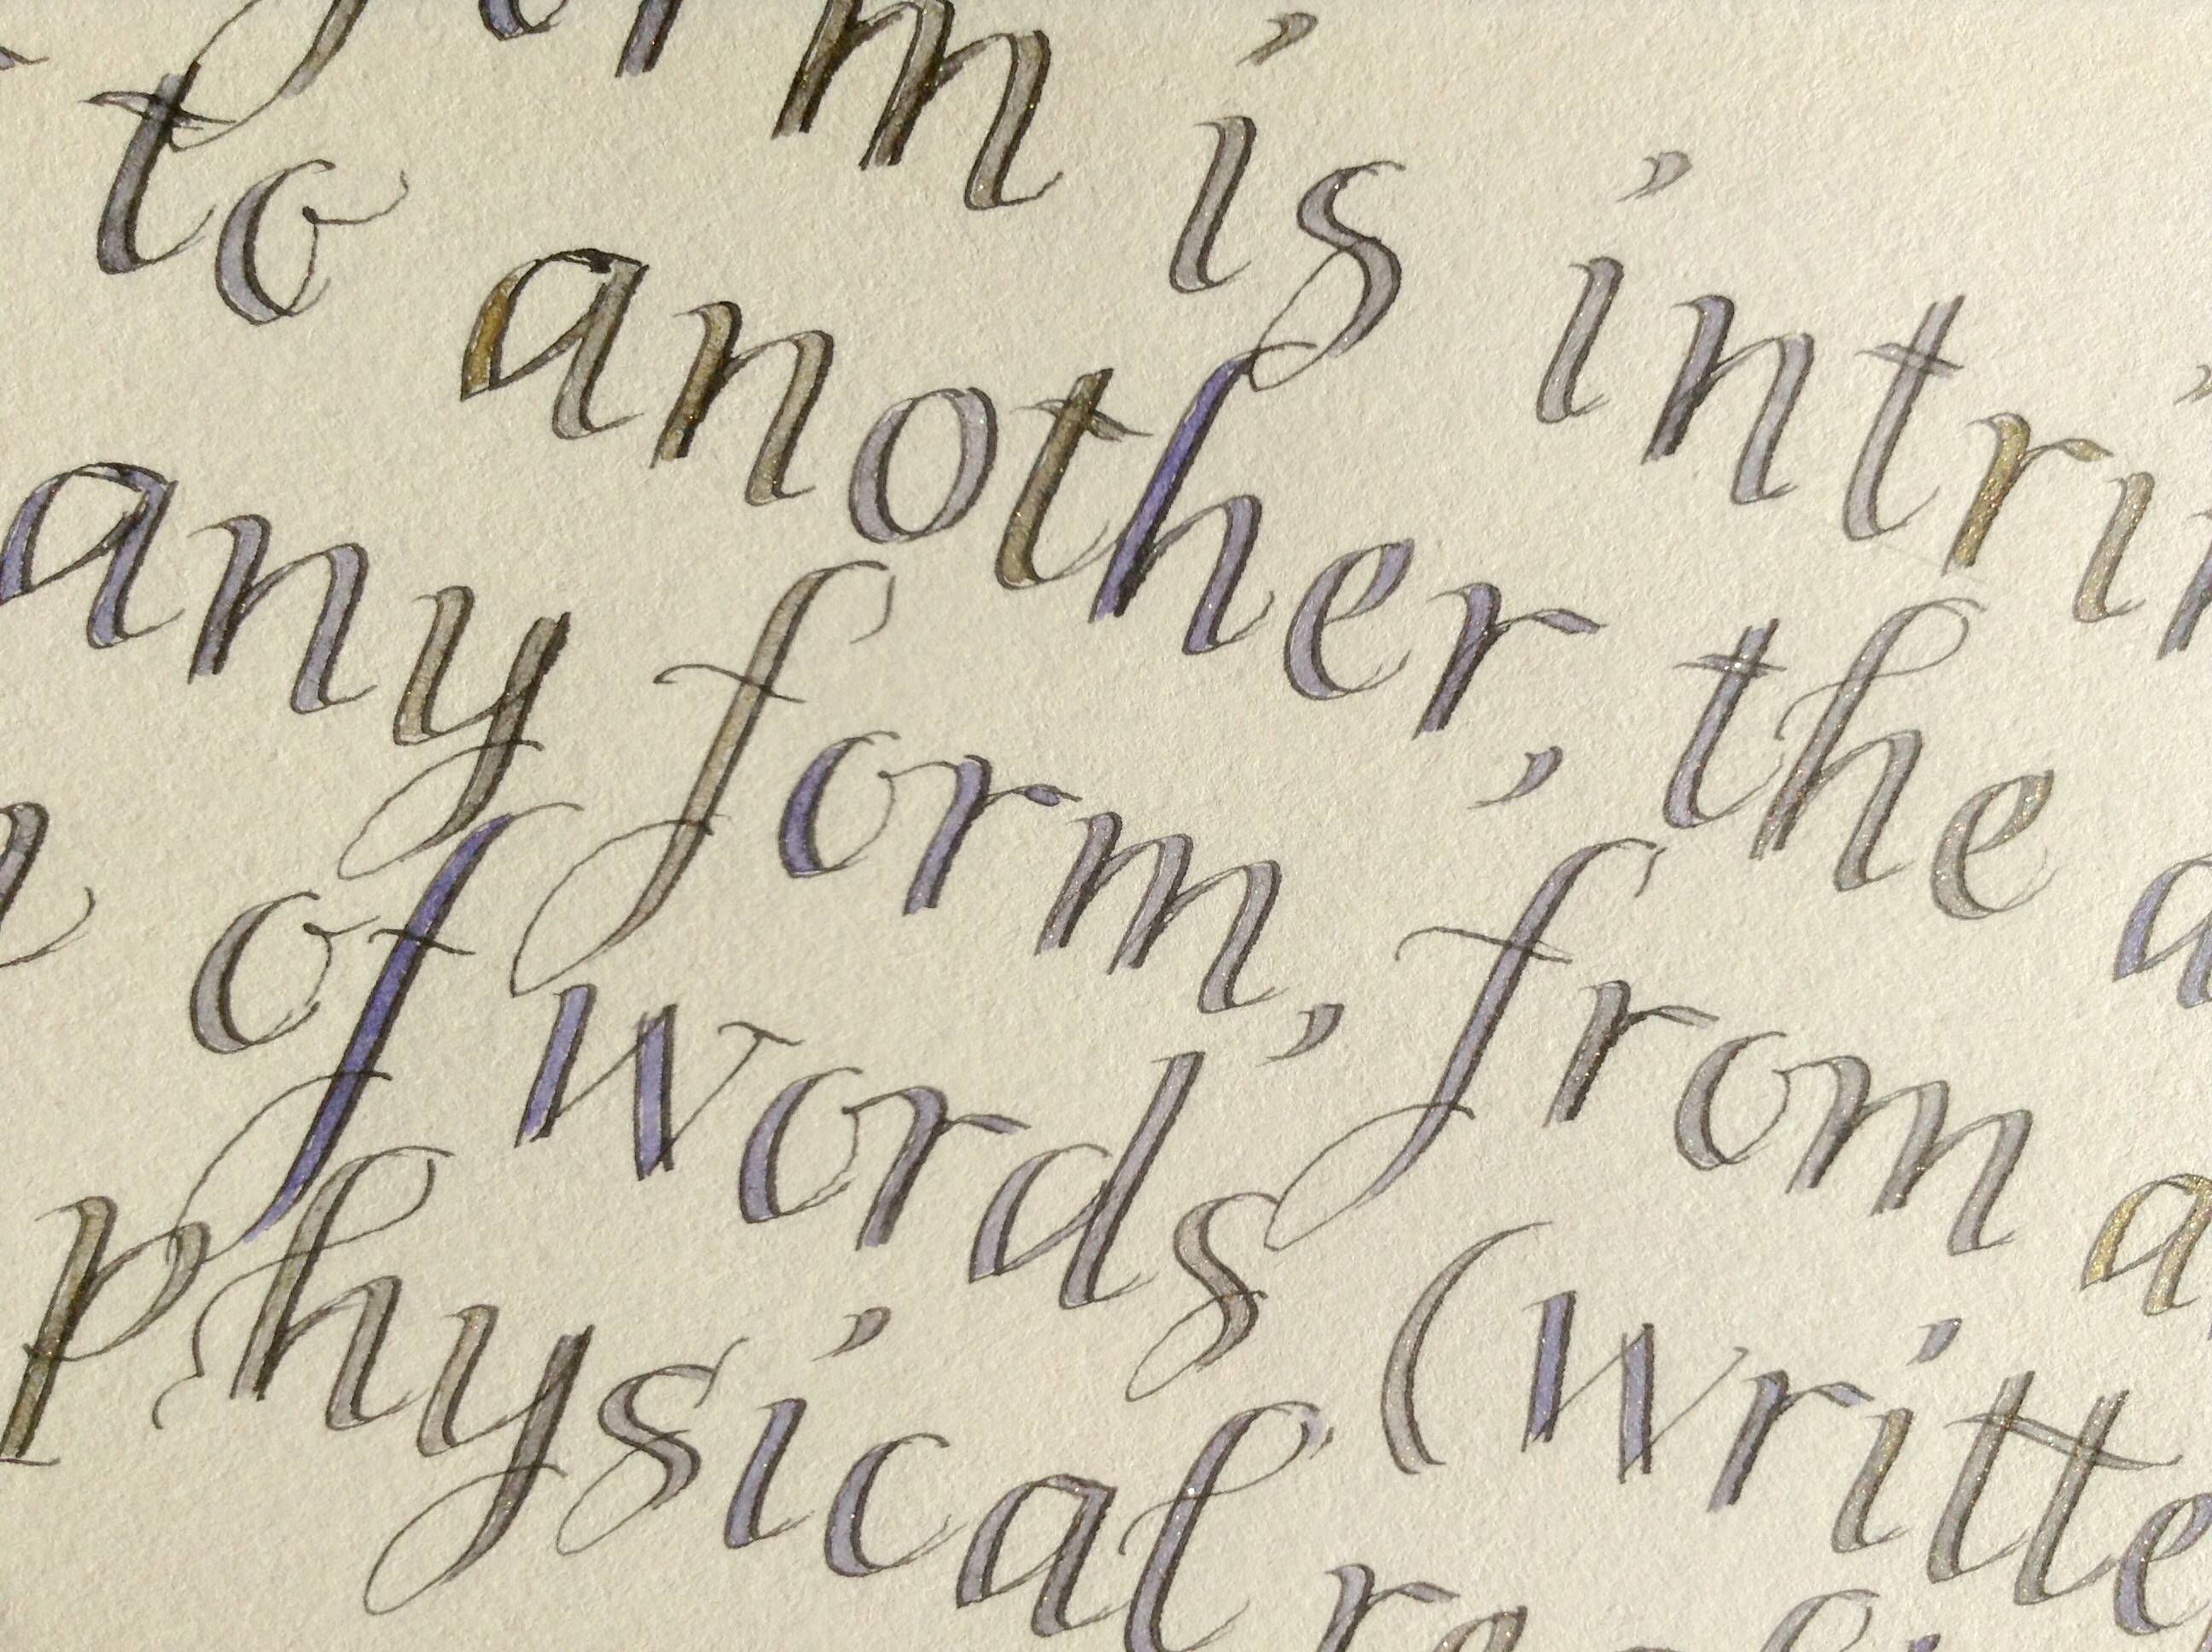 form is intri
to another, the a
any form, from a
of words (writte
physical